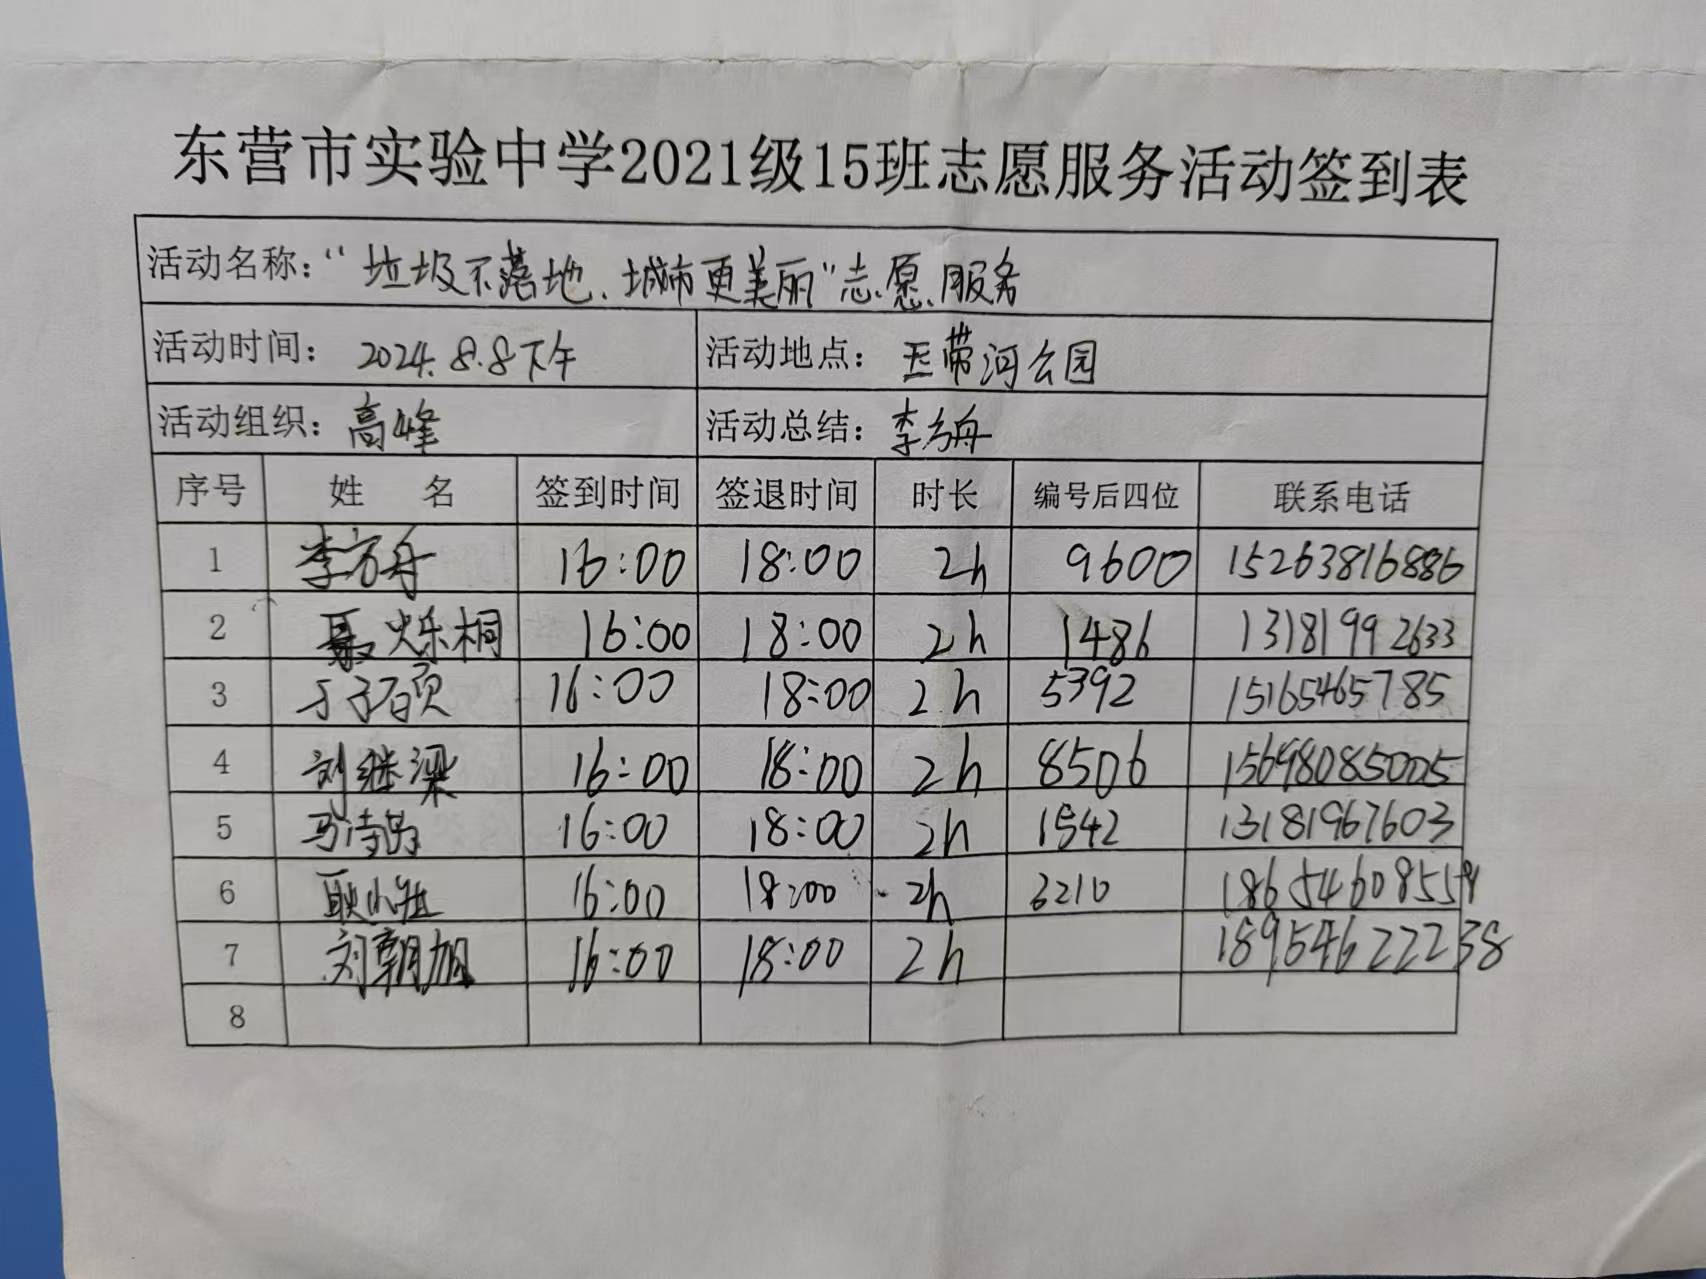 东营市实验中学2021级15班志愿服务活动签到表
活动名称："垃圾不落地、城市更美丽"志愿服务
活动时间： 2024.8.8下午 活动地点： 玉带河公园
活动组织：高峰 活动总结：李方舟
序号 姓 名 签到时间 签退时间 时长 编号后四位 联系电话
1 李方舟 16:00 18:00 2h 9600 15263816886
2 聂烁桐 16:00 18:00 2h 1486 13181992633
3 于子硕 16:00 18:00 2h 5392 15165465785
4 刘继梁 16:00 18:00 2h 8506 15698085005
5 马诗 16:00 18:00 2h 1542 13181967603
6 耿小 16:00 18:00 2h 3210
7 刘朝旭 16:00 18:00 2h 18954622238
8